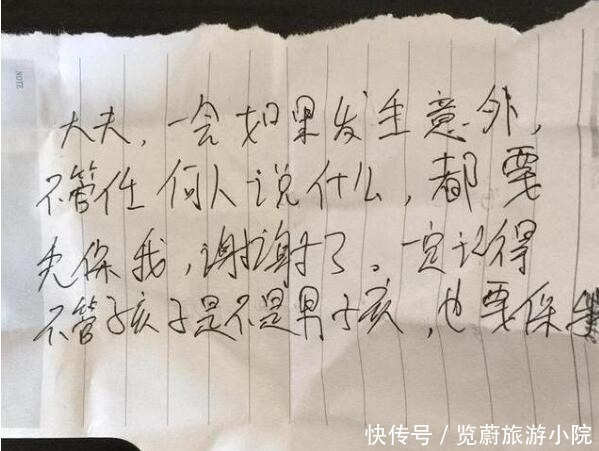 NOTE
大夫，一会如果发生意外，
不管任何人说什么，都要
先保我，谢谢了。一定记得
不管孩子是不是男孩，也要保
快传号／览蔚旅游小院